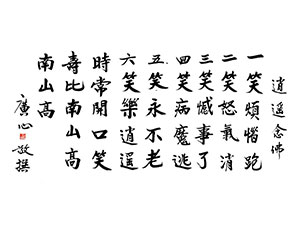 逍遥念佛
一笑煩惱跑
二笑怒氣消
三笑憾事了
四笑病魔逃
五笑永不老
六笑樂逍遥
時常開口笑
壽比南山高
南山高
廣心敬撰